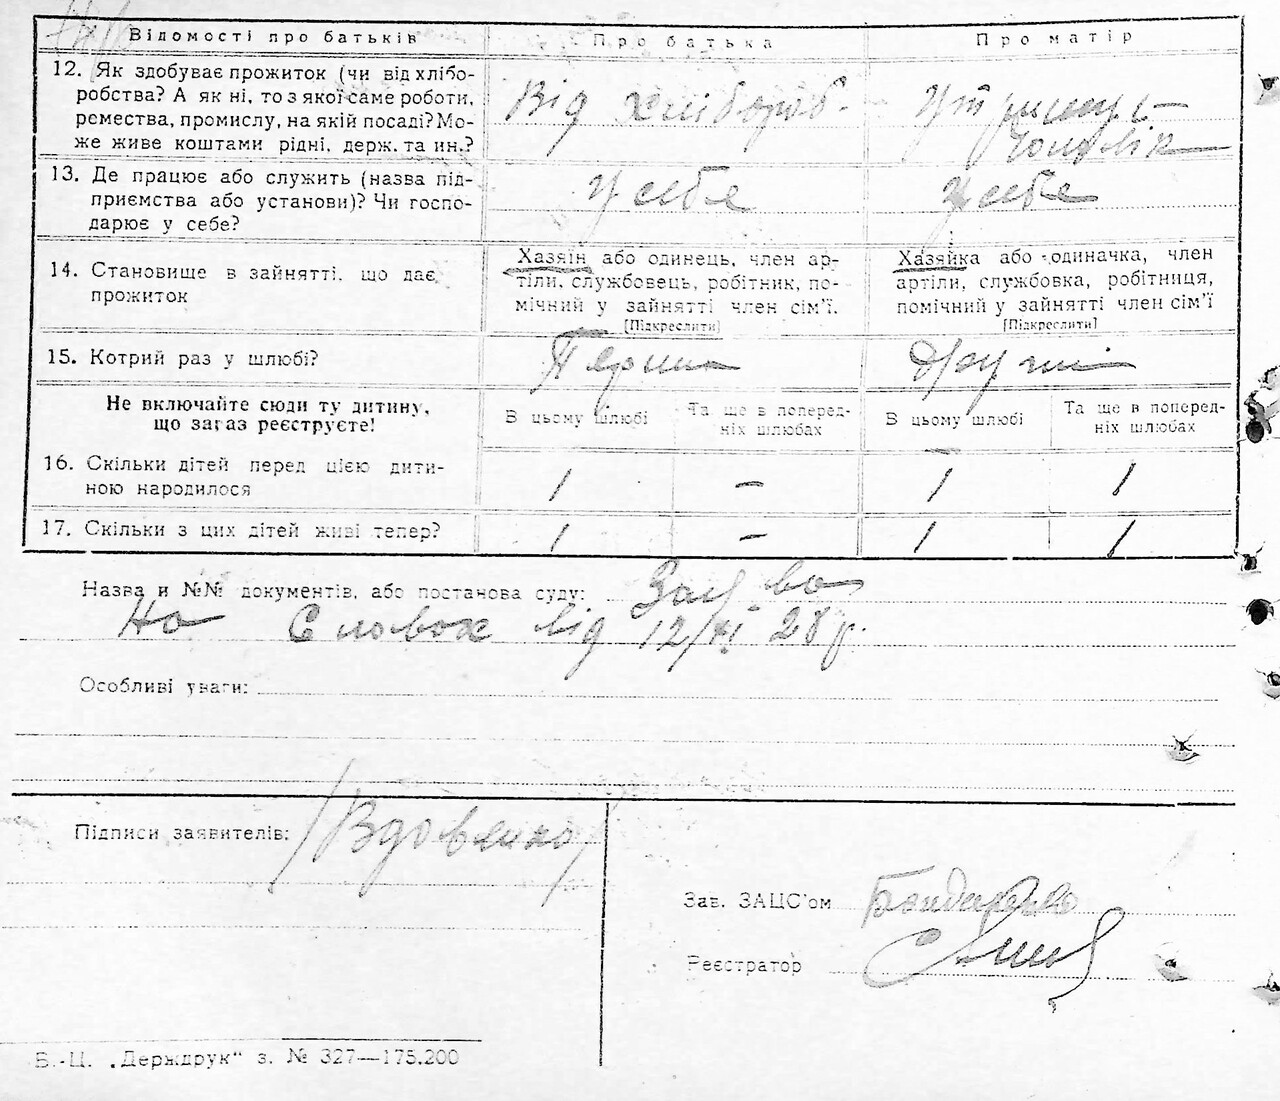 Відомості про батьків
Про батька
Про матір
12. Як здобуває прожиток (чи від хлібо-
робства? А як ні, то з якої саме роботи,
ремества, промислу, на якій посаді? Мо-
же живе коштами рідні, держ. та ин.?
Від хлібороб-
Утримує
чоловік
13. Де працює або служить (назва під-
приємства або установи)? Чи госпо-
дарює у себе?
У себе
У себе
14. Становище в зайнятті, що дає
прожиток
Хазяїн або одинець, член ар-
тіли, службовець, робітник, по-
мічний у зайнятті член сім'ї.
[Підкреслити]
Хазяйка або одиначка, член
артіли, службовка, робітниця,
помічний у зайнятті член сім'ї
[Підкреслити]
15. Котрий раз у шлюбі?
Перший
Другий
Не включайте сюди ту дитину,
що загаз реєструєте!
В цьому шлюбі
Та ще в поперед-
ніх шлюбах
В цьому шлюбі
Та ще в поперед-
ніх шлюбах
16. Скільки дітей перед цією дити-
ною народилося
1
–
1
1
17. Скільки з цих дітей живі тепер?
1
–
1
1
Назва и №№ документів, або постанова суду:
На словох від 12/XI 28 р.
Особливі уваги:
Підписи заявителів: /Вдовенко/
Зав. ЗАЦС'ом Бондаренко
Реєстратор
Б.-Ц. „Держдрук" з. № 327—175.200